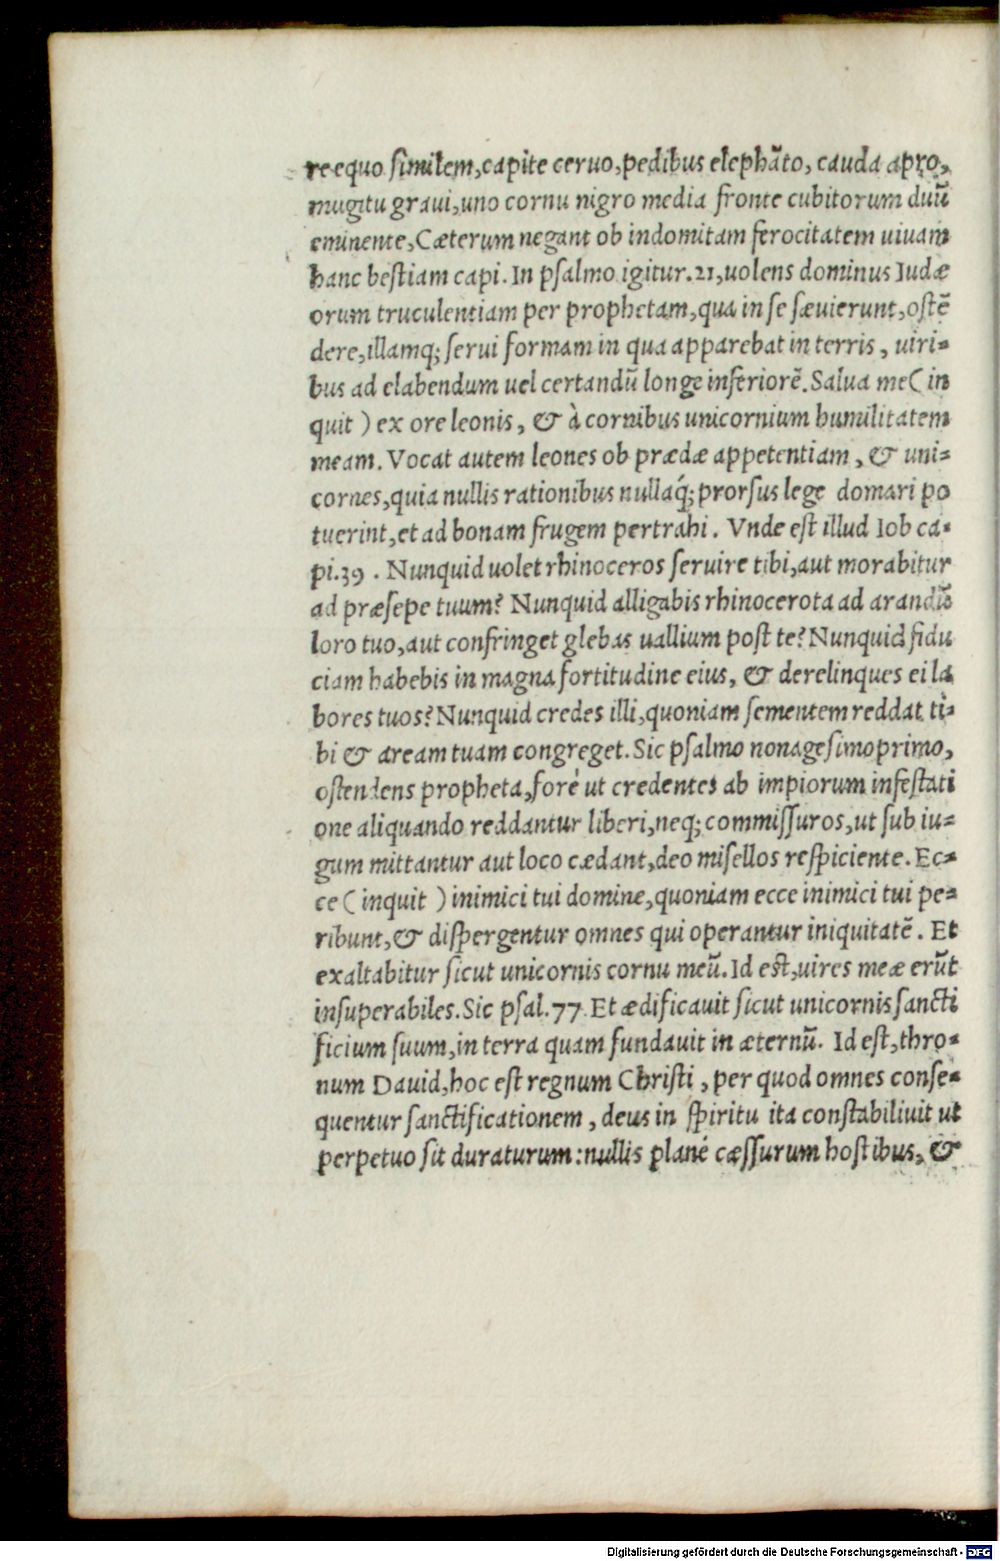 re equo similem, capite ceruo, pedibus elephāto, cauda apro,
mugitu graui, uno cornu nigro media fronte cubitorum duū
eminente, Cæterum negant ob indomitam ferocitatem uiuam
hanc bestiam capi. In psalmo igitur. 21, uolens dominus Iudæ
orum truculentiam per prophetam, qua in se sæuierunt, ostē
dere, illamq; serui formam in qua apparebat in terris, uiri-
bus ad elabendum uel certandū longe inferiorē. Salua me ( in
quit ) ex ore leonis, & à cornibus unicornium humilitatem
meam. Vocat autem leones ob prædæ appetentiam, & uni-
cornes, quia nullis rationibus nullaq́; prorsus lege domari po
tuerint, et ad bonam frugem pertrahi. Vnde est illud Iob ca-
pi. 39. Nunquid uolet rhinoceros seruire tibi, aut morabitur
ad præsepe tuum? Nunquid alligabis rhinocerota ad arandū
loro tuo, aut confringet glebas uallium post te? Nunquid fidu
ciam habebis in magna fortitudine eius, & derelinques ei la
bores tuos? Nunquid credes illi, quoniam sementem reddat ti-
bi & aream tuam congreget. Sic psalmo nonagesimoprimo,
ostendens propheta, forè ut credentes ab impiorum infestati
one aliquando reddantur liberi, neq; commissuros, ut sub iu-
gum mittantur aut loco cædant, deo misellos respiciente. Ec-
ce ( inquit ) inimici tui domine, quoniam ecce inimici tui pe-
ribunt, & dispergentur omnes qui operantur iniquitatē. Et
exaltabitur sicut unicornis cornu meū. Id est, uires meæ erūt
insuperabiles. Sic psal. 77. Et ædificauit sicut unicornis sancti
ficium suum, in terra quam fundauit in æternū. Id est, thro-
num Dauid, hoc est regnum Christi, per quod omnes conse-
quentur sanctificationem, deus in spiritu ita constabiliuit ut
perpetuo sit duraturum: nullis planè cæssurum hostibus, &
Digitalisierung gefördert durch die Deutsche Forschungsgemeinschaft - DFG